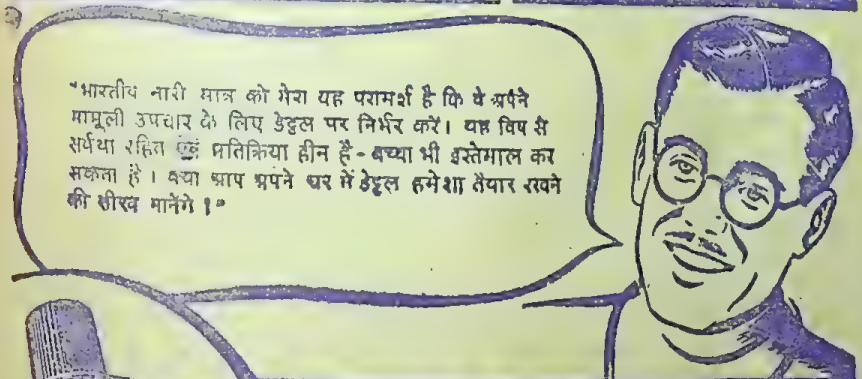 "भारतीय नारी मात्र को मेरा यह परामर्श है कि वे अपने
मामूली उपचार के लिए डेट्टल पर निर्भर करें। यह विष से
सर्वथा रहित एवं प्रतिक्रिया हीन है - बच्चा भी इस्तेमाल कर
सकता है। क्या आप अपने घर में डेट्टल हमेशा तैयार रखने
की सीख मानेंगे?"